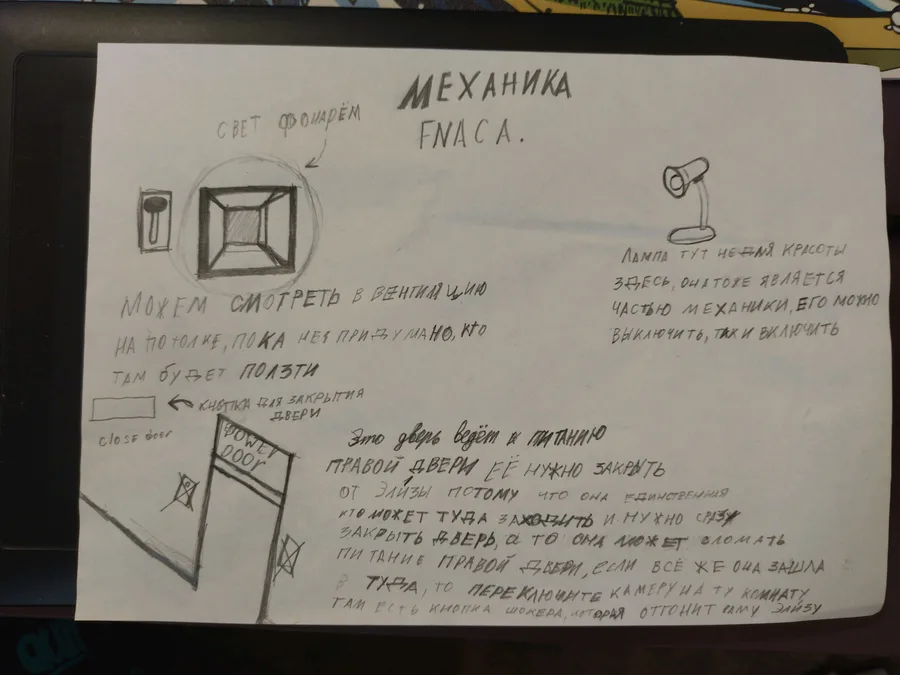 МЕХАНИКА
FNACA.
СВЕТ ФОНАРЁМ
МОЖЕМ СМОТРЕТЬ В ВЕНТИЛЯЦИЮ
НА ПОТОЛКЕ, ПОКА НЕ ПРИДУМАНО, КТО
ТАМ БУДЕТ ПОЛЗТИ
ЛАМПА ТУТ НЕ ДЛЯ КРАСОТЫ
ЗДЕСЬ, ОНА ТОЖЕ ЯВЛЯЕТСЯ
ЧАСТЬЮ МЕХАНИКИ, ЕГО МОЖНО
ВЫКЛЮЧИТЬ, ТАК И ВКЛЮЧИТЬ
КНОПКА ДЛЯ ЗАКРЫТИЯ
ДВЕРИ
close door
POWER
DOOR
Это дверь ведёт к ПИТАНИЮ
ПРАВОЙ ДВЕРИ ЕЁ НУЖНО ЗАКРЫТЬ
ОТ ЭЛИЗЫ ПОТОМУ ЧТО ОНА ЕДИНСТВЕННАЯ
КТО МОЖЕТ ТУДА ЗАХОДИТЬ И НУЖНО СРАЗУ
ЗАКРЫТЬ ДВЕРЬ, А ТО ОНА МОЖЕТ СЛОМАТЬ
ПИТАНИЕ ПРАВОЙ ДВЕРИ, ЕСЛИ ВСЁ ЖЕ ОНА ЗАШЛА
ТУДА, ТО ПЕРЕКЛЮЧИТЕ КАМЕРУ НА ТУ КОМНАТУ
ТАМ ЕСТЬ КНОПКА ШОКЕРА, КОТОРАЯ ОТГОНИТ САМУ ЭЛИЗУ